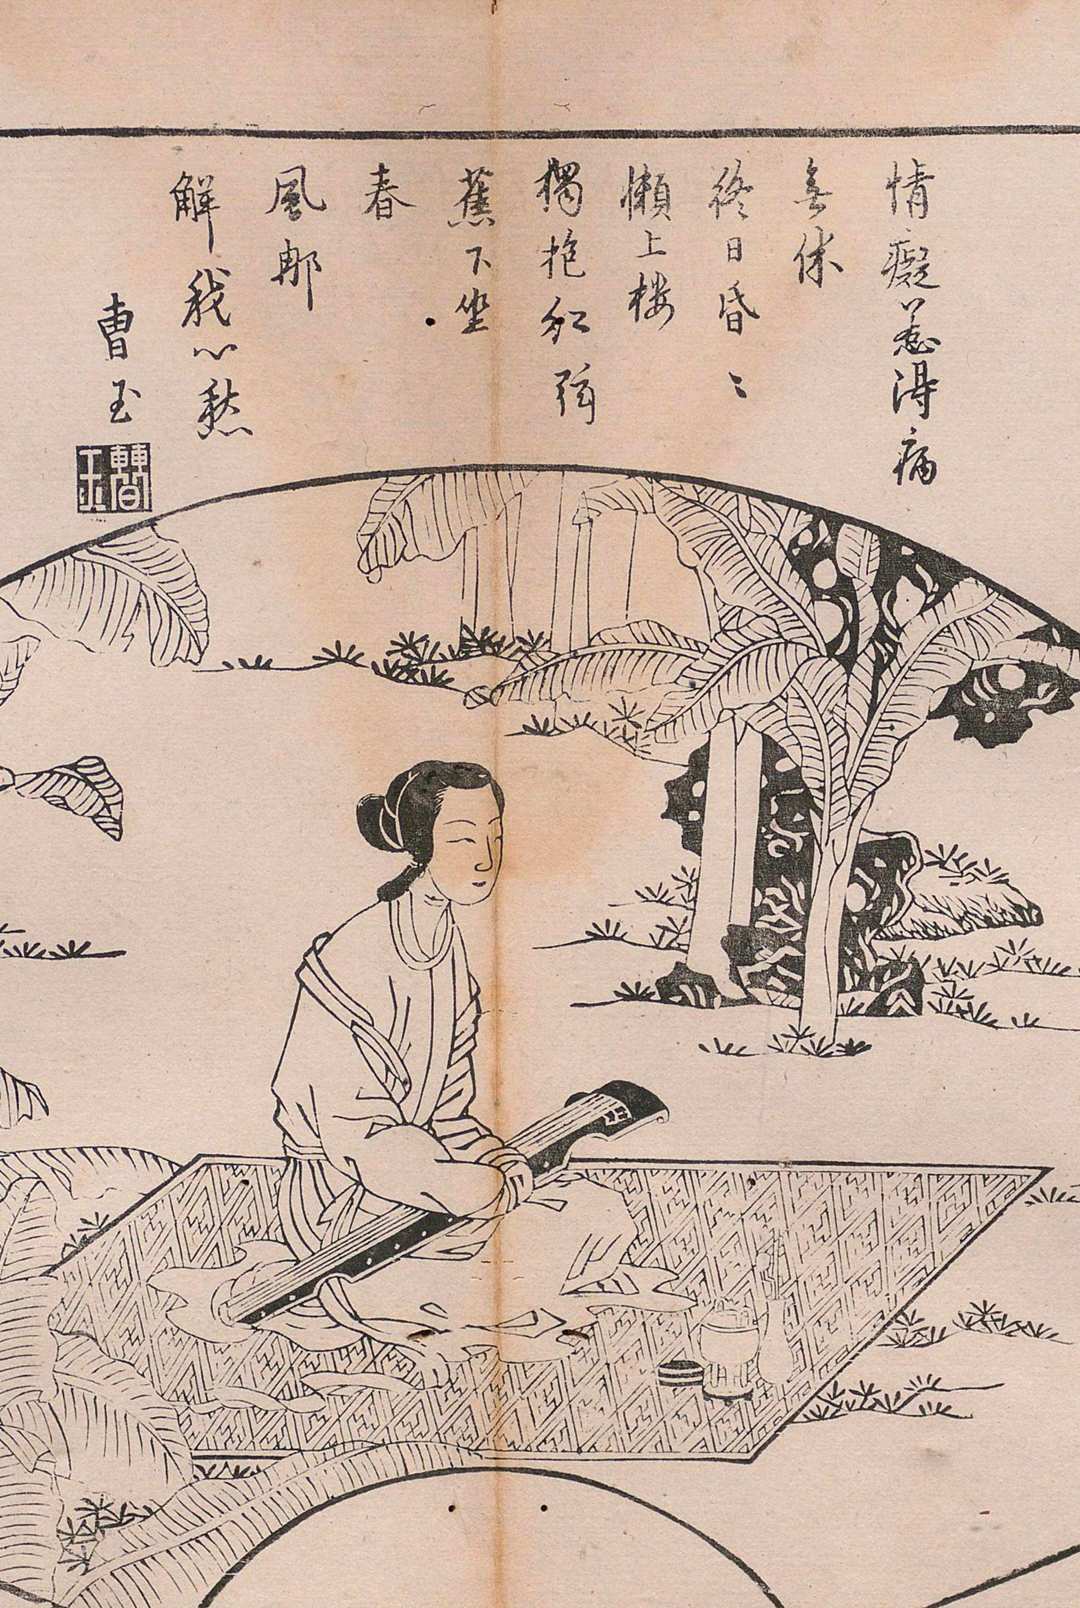 情癡惹得病
無休
終日昏〻
懶上樓
獨抱紅弦
蕉下坐
春
風那
解我心愁
曹玉